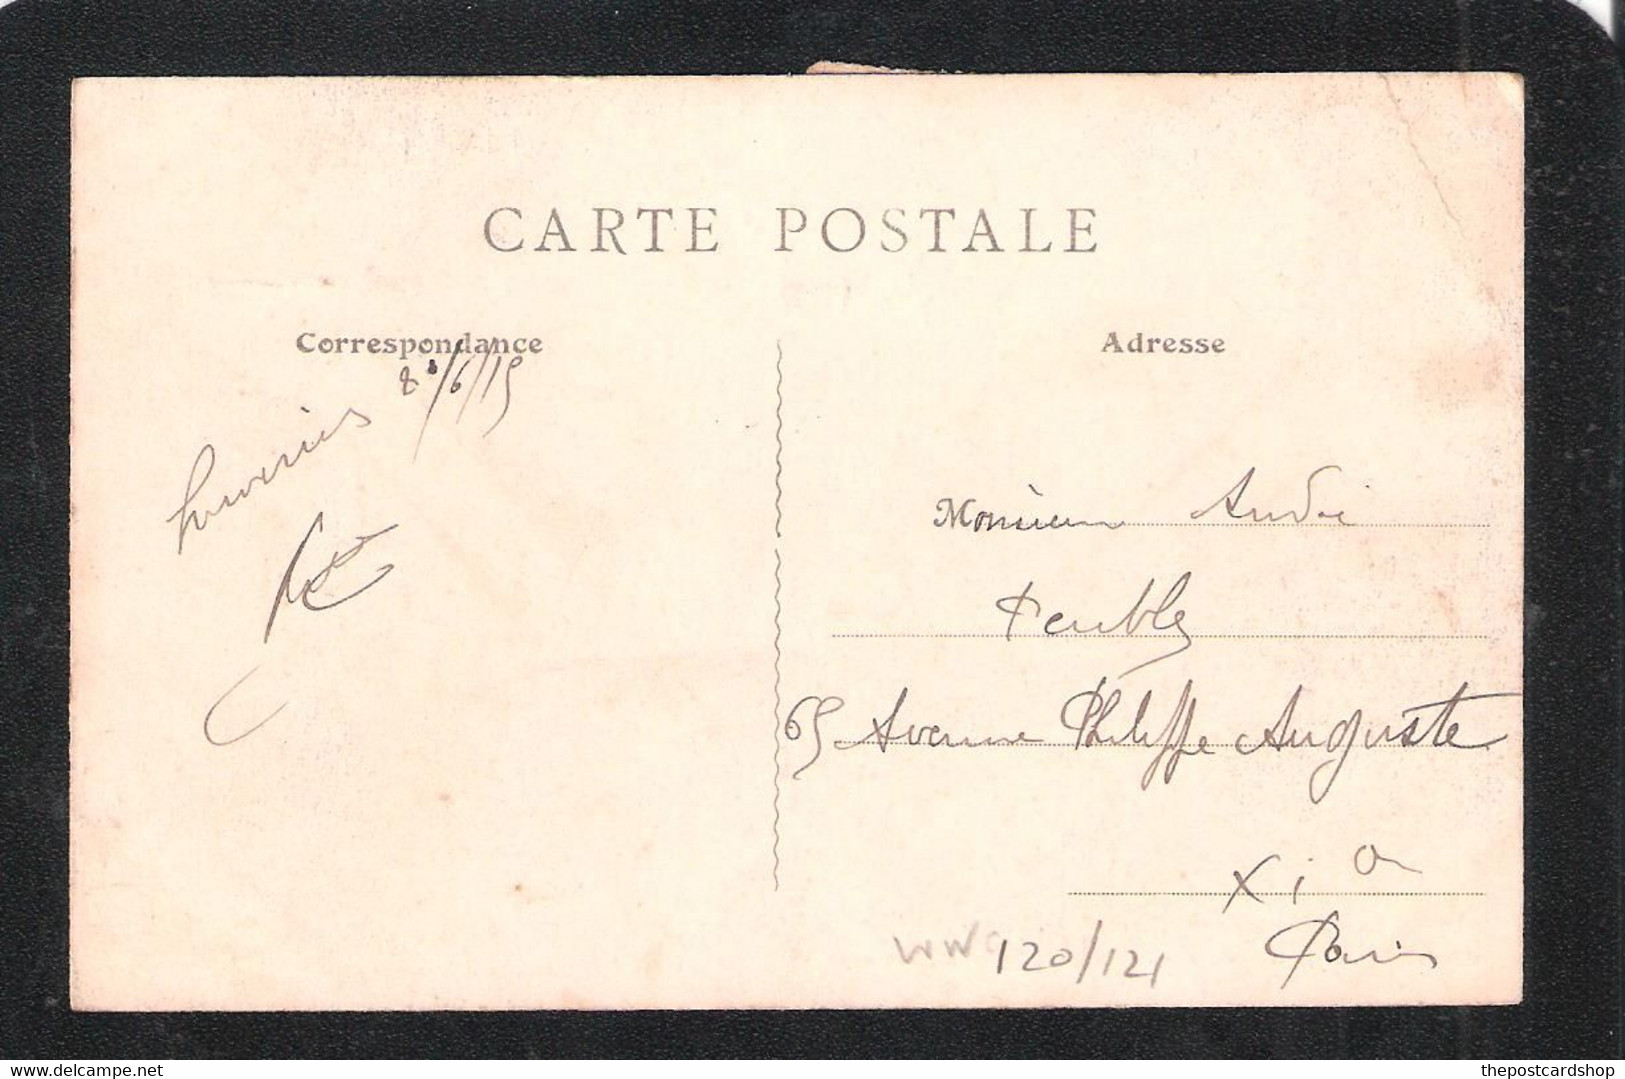 CARTE POSTALE
Correspondance
Adresse
8/6/15
Souvenirs
Monsieur André
65 Avenue Philippe Auguste
XI e
Paris
WW 120/121
delcampe.net
thepostcardshop